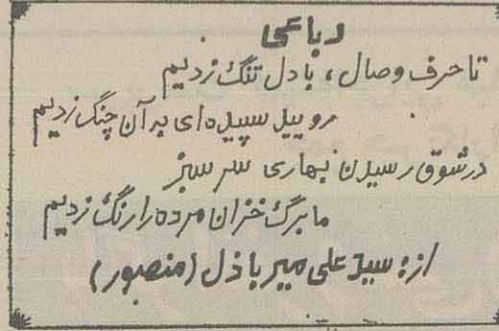 رباعی
تا حرف وصال، با دل تنگ زدیم
رویید سپیده‌ای به آن چنگ زدیم
در شوق رسیدن بهاری سرسبز
ما برگ خزان مرده را رنگ زدیم
از: سید علی میر باذل (منصور)